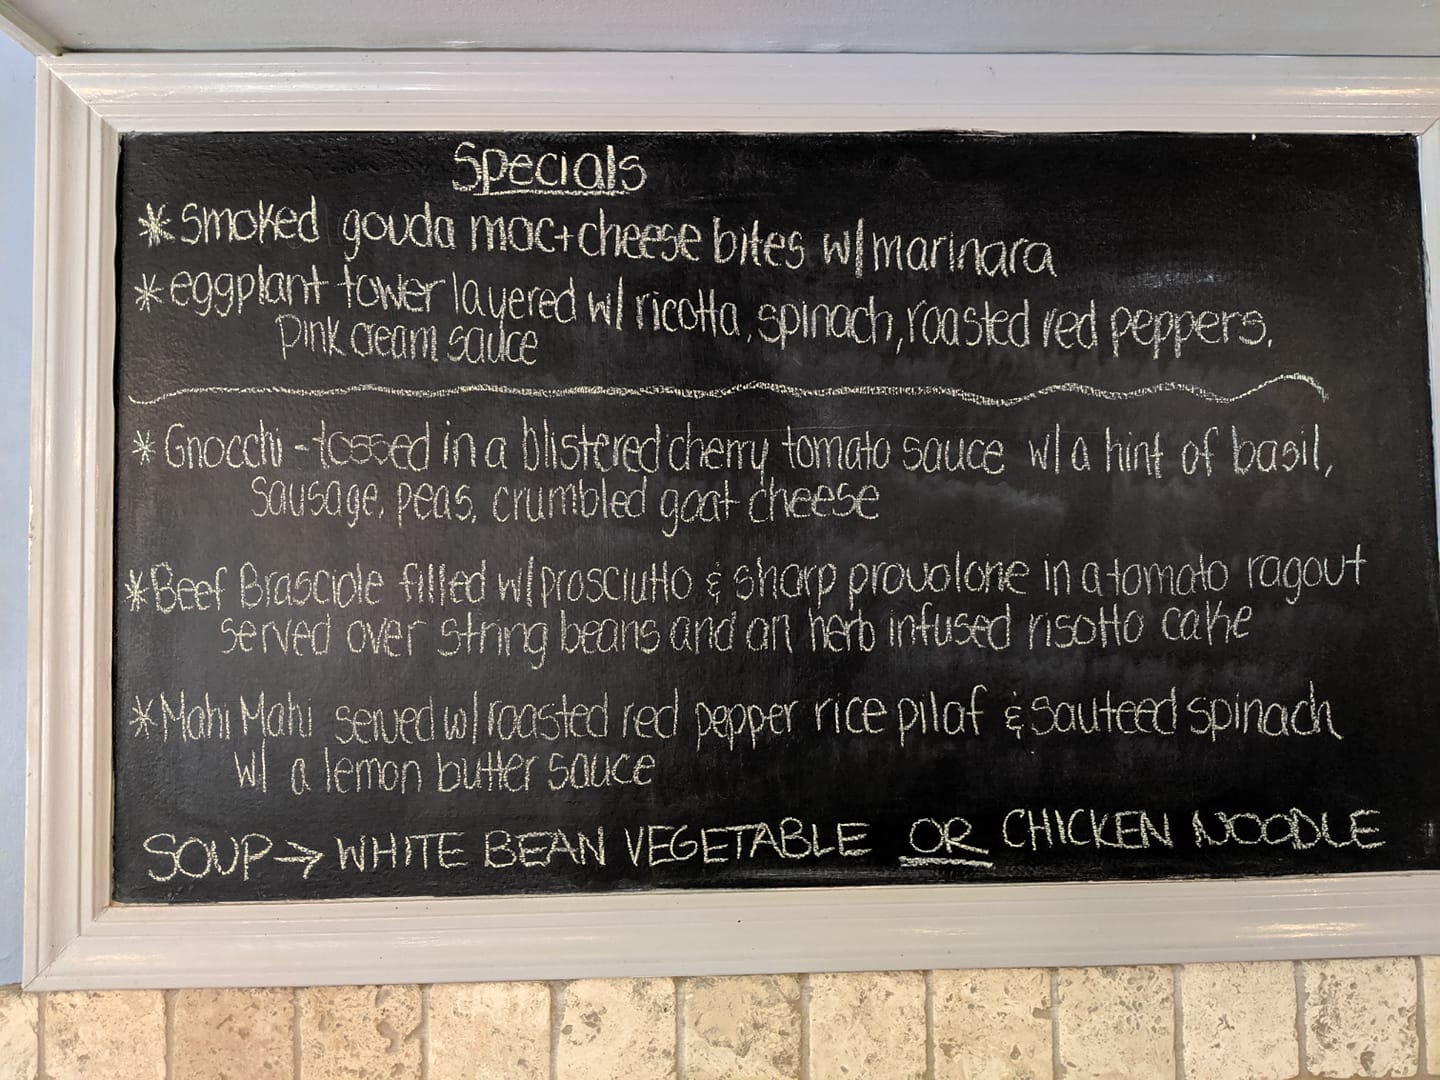 Specials
* Smoked gouda mac + cheese bites w/ marinara
* eggplant tower layered w/ ricotta, spinach, roasted red peppers,
pink cream sauce
* Gnocchi - tossed in a blistered cherry tomato sauce w/ a hint of basil,
sausage, peas, crumbled goat cheese
* Beef Brasciole filled w/ prosciutto & sharp provolone in a tomato ragout
served over string beans and an herb infused risotto cake
* Mahi Mahi served w/ roasted red pepper rice pilaf & sauteed spinach
w/ a lemon butter sauce
SOUP → WHITE BEAN VEGETABLE OR CHICKEN NOODLE